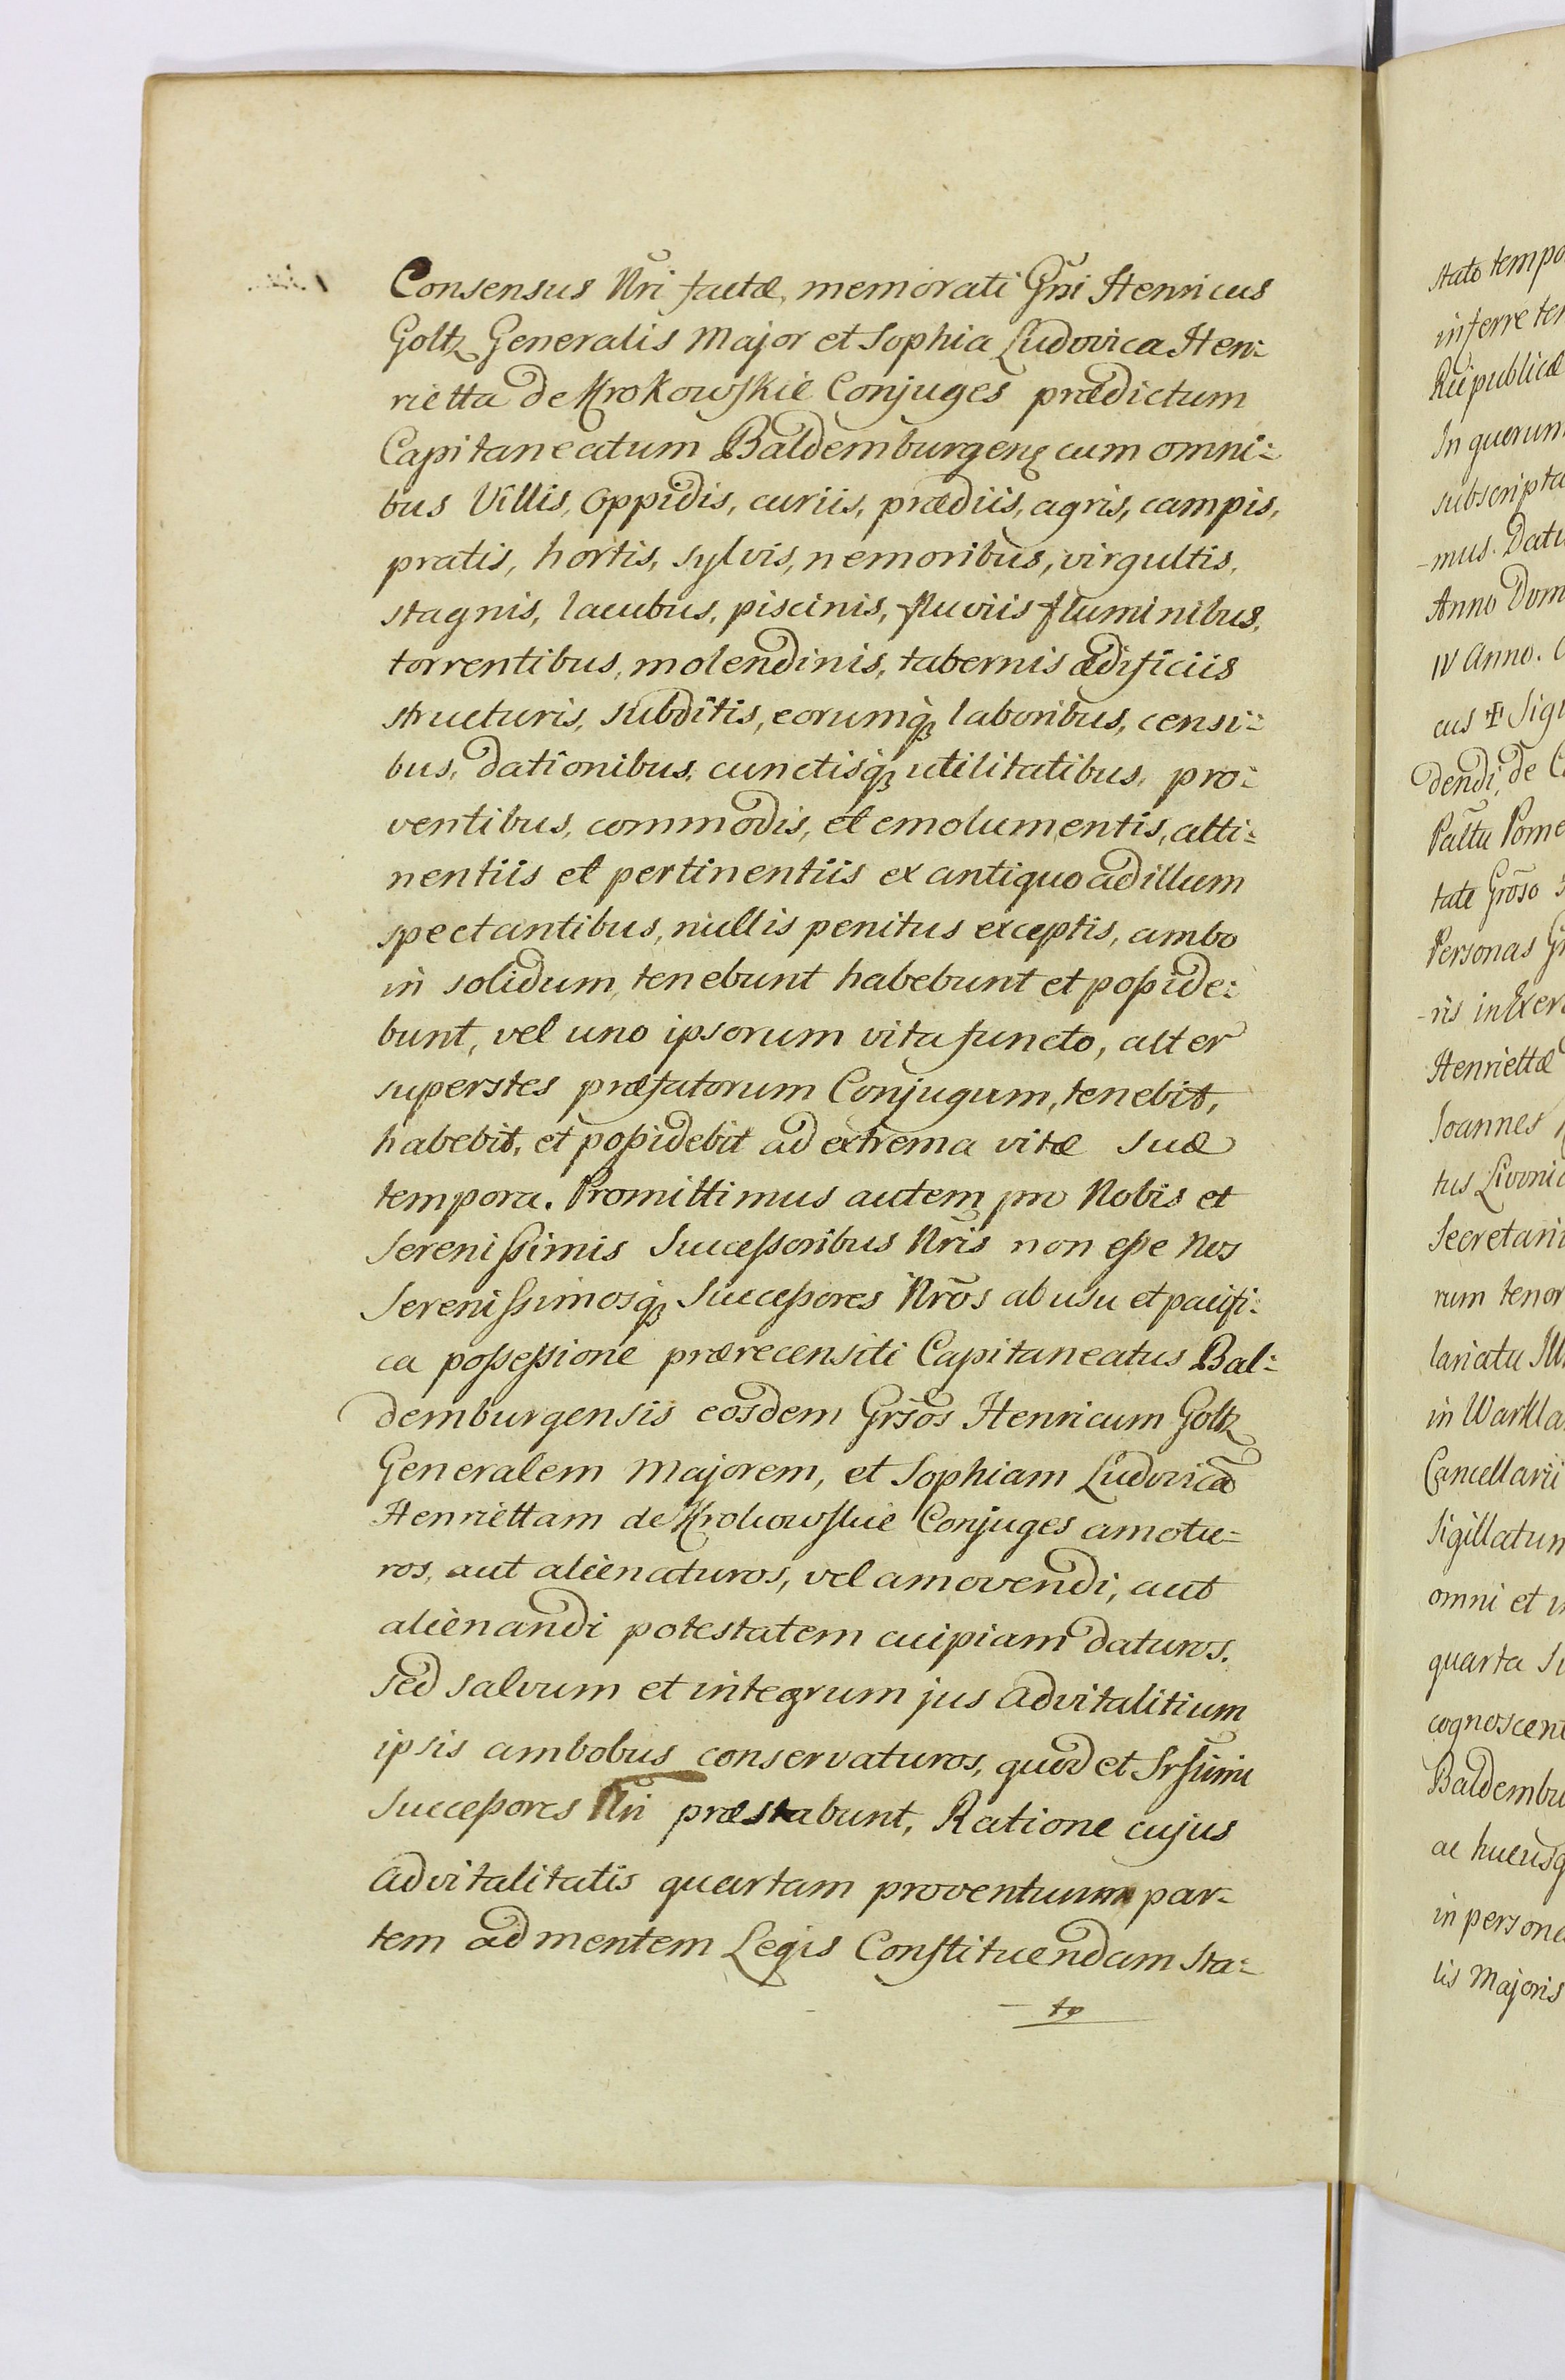 Consensus Nri factæ, memorati Gñi Henricus
Goltz Generalis Major et Sophia Ludovica Hen:
rietta de Krokowskie Conjuges prædictum
Capitaneatum Baldemburgens cum omni:
bus Villis, Oppidis, curiis, prædiis, agris, campis,
pratis, hortis, sylvis, nemoribus, virgultis,
stagnis, lacubus, piscinis, fluviis fluminibus,
torrentibus, molendinis, tabernis ædificiis
structuris, subditis, eorumq; laboribus, censi:
bus, dationibus, cunctisq; utilitatibus, pro:
ventibus, commodis, et emolumentis, atti:
nentiis et pertinentiis ex antiquo ad illum
spectantibus, nullis penitus exceptis, ambo
in solidum, tenebunt habebunt et poßide:
bunt, vel uno ipsorum vita functo, alter
superstes præfatorum Conjugum, tenebit,
habebit, et poßidebit ad extrema vitæ suæ
tempora. Promittimus autem pro Nobis et
Serenißimis Succeßoribus Nris non eße Nos
Serenissimosq; Succeßores Nros ab usu et pacifi:
ca poßeßione prærecensiti Capitaneatus Bal:
demburgensis eosdem Grsos Henricum Goltz
Generalem Majorem, et Sophiam Ludovicã
Henriettam de Krokowskie Conjuges amotu=
ros, aut alienaturos, vel amovendi, aut
alienandi potestatem cuipiam daturos.
sed salvum et integrum jus advitalitium
ipsis ambobus conservaturos, quod et Srssimi
Succeßores Nri præstabunt, Ratione cujus
advitalitatis quartam proventuum par=
tem ad mentem Legis Constituendam sta:
to
stato tempo
inferre ter
Reipublicæ
In quorum
subscripta
-mus. Datu
Anno Dom
IV Anno.
cus Sigi
dendi, de C
Palttu Pome
tate Groso
Personas G
-ris in Exer
Henriettæ
Joannes
tus Livonic
Secretari
rum tenor
lariatu Ill
in Warkla
Cancellarii
Sigillatum
omni et i
quarta Si
cognoscent
Baldembu
ac hucusq
in persona
lis Majoris